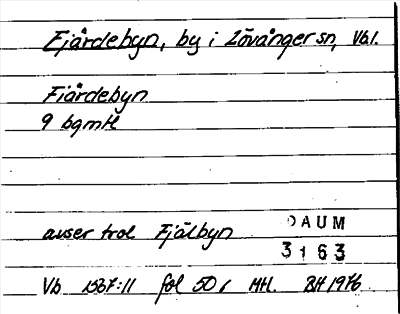 Fjärdebyn, by i Lövånger sn, Vb l.
Fiårdebyn
9 bgmtl
avser trol Fjälbyn
DAUM
3163
Vb 1537:11 fol 50 r Mtl. BH 1976